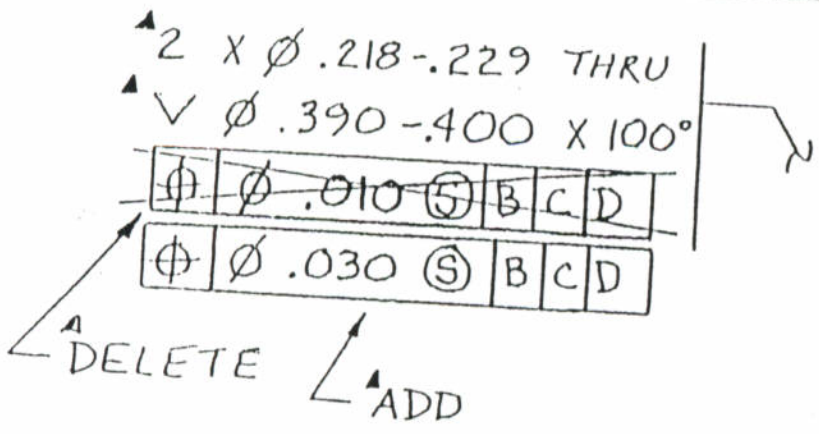 ▲2 X Ø .218-.229 THRU
▲⌵ Ø .390-.400 X 100°
⌖ Ø .010 Ⓢ B C D
⌖ Ø .030 Ⓢ B C D
▲DELETE
▲ADD